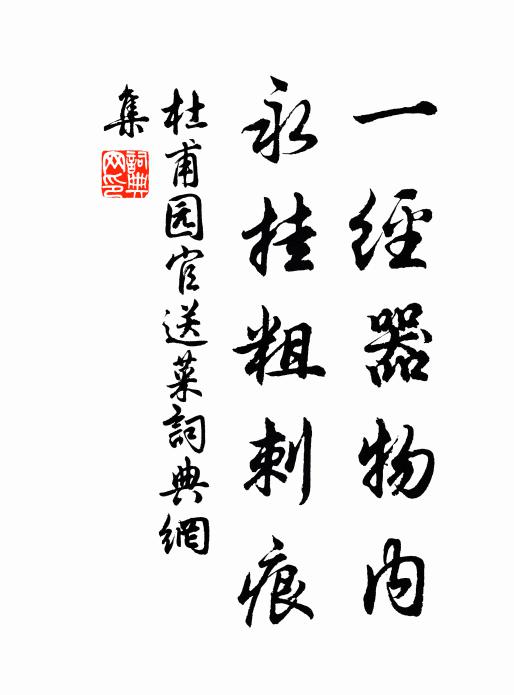 一經器物内
永挂粗刺痕
杜甫园官送菜詞典網
集
詞典网印